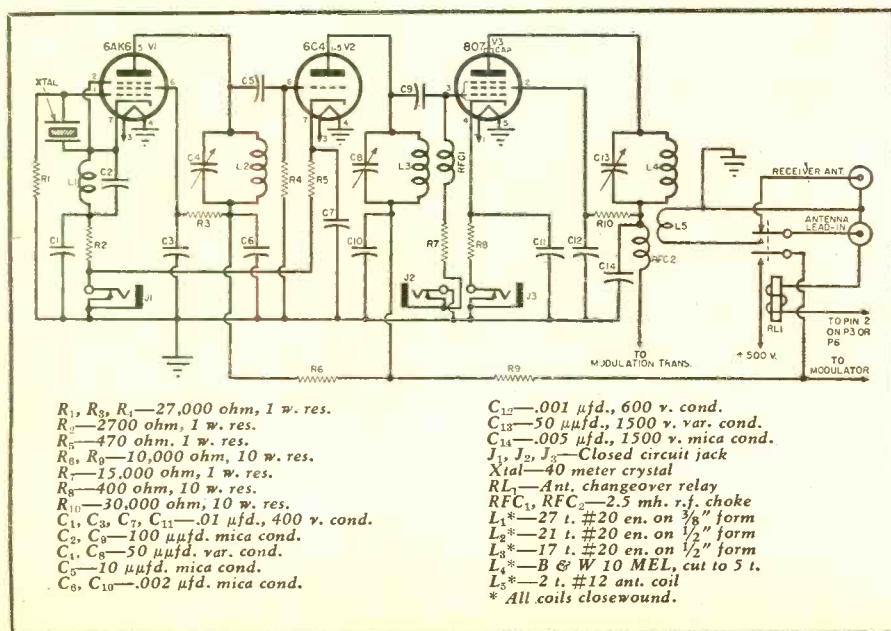 6AK6 5 V1
6C4 1-5 V2
807 V3 CAP
XTAL
2
1
6
7
3
4
C5
6
7
3
4
C9
3
2
4
1
5
R1
L1
C2
C4
L2
R4
R5
C8
L3
RFC1
C13
L4
RECEIVER ANT.
C1
R2
C3
R3
C6
C7
C10
R7
R8
C11
C12
R10
L5
ANTENNA LEAD-IN
C14
RFC2
J1
J2
J3
RL1
TO PIN 2
ON P3 OR
P6
R6
R9
TO
MODULATION TRANS.
+ 500 V.
TO
MODULATOR
R₁, R₃, R₄—27,000 ohm, 1 w. res.
R₂—2700 ohm, 1 w. res.
R₅—470 ohm. 1 w. res.
R₆, R₉—10,000 ohm, 10 w. res.
R₇—15,000 ohm, 1 w. res.
R₈—400 ohm, 10 w. res.
R₁₀—30,000 ohm, 10 w. res.
C₁, C₃, C₇, C₁₁—.01 μfd., 400 v. cond.
C₂, C₉—100 μμfd. mica cond.
C₄, C₈—50 μμfd. var. cond.
C₅—10 μμfd. mica cond.
C₆, C₁₀—.002 μfd. mica cond.
C₁₂—.001 μfd., 600 v. cond.
C₁₃—50 μμfd., 1500 v. var. cond.
C₁₄—.005 μfd., 1500 v. mica cond.
J₁, J₂, J₃—Closed circuit jack
Xtal—40 meter crystal
RL₁—Ant. changeover relay
RFC₁, RFC₂—2.5 mh. r.f. choke
L₁*—27 t. #20 en. on 3/8" form
L₂*—21 t. #20 en. on 1/2" form
L₃*—17 t. #20 en. on 1/2" form
L₄*—B & W 10 MEL, cut to 5 t.
L₅*—2 t. #12 ant. coil
* All coils closewound.